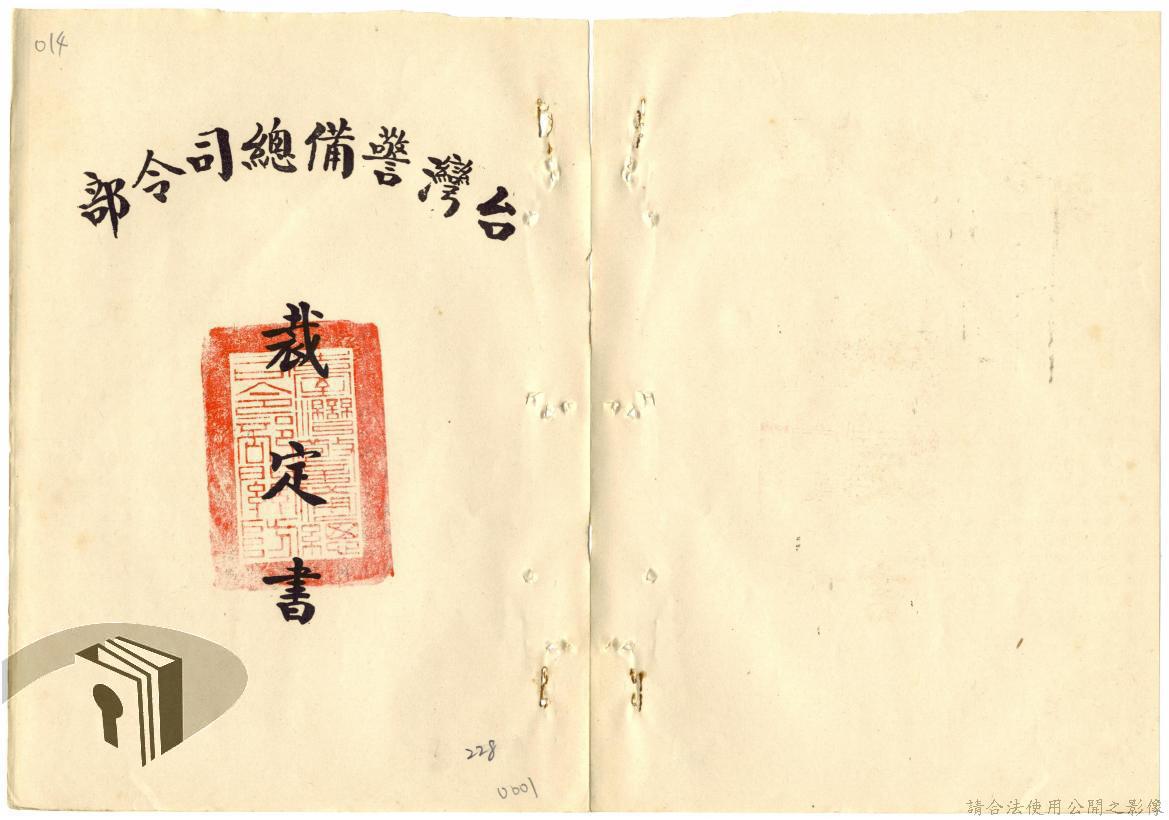 014
台灣警備總司令部
裁定書
228
0001
請合法使用公開之影像